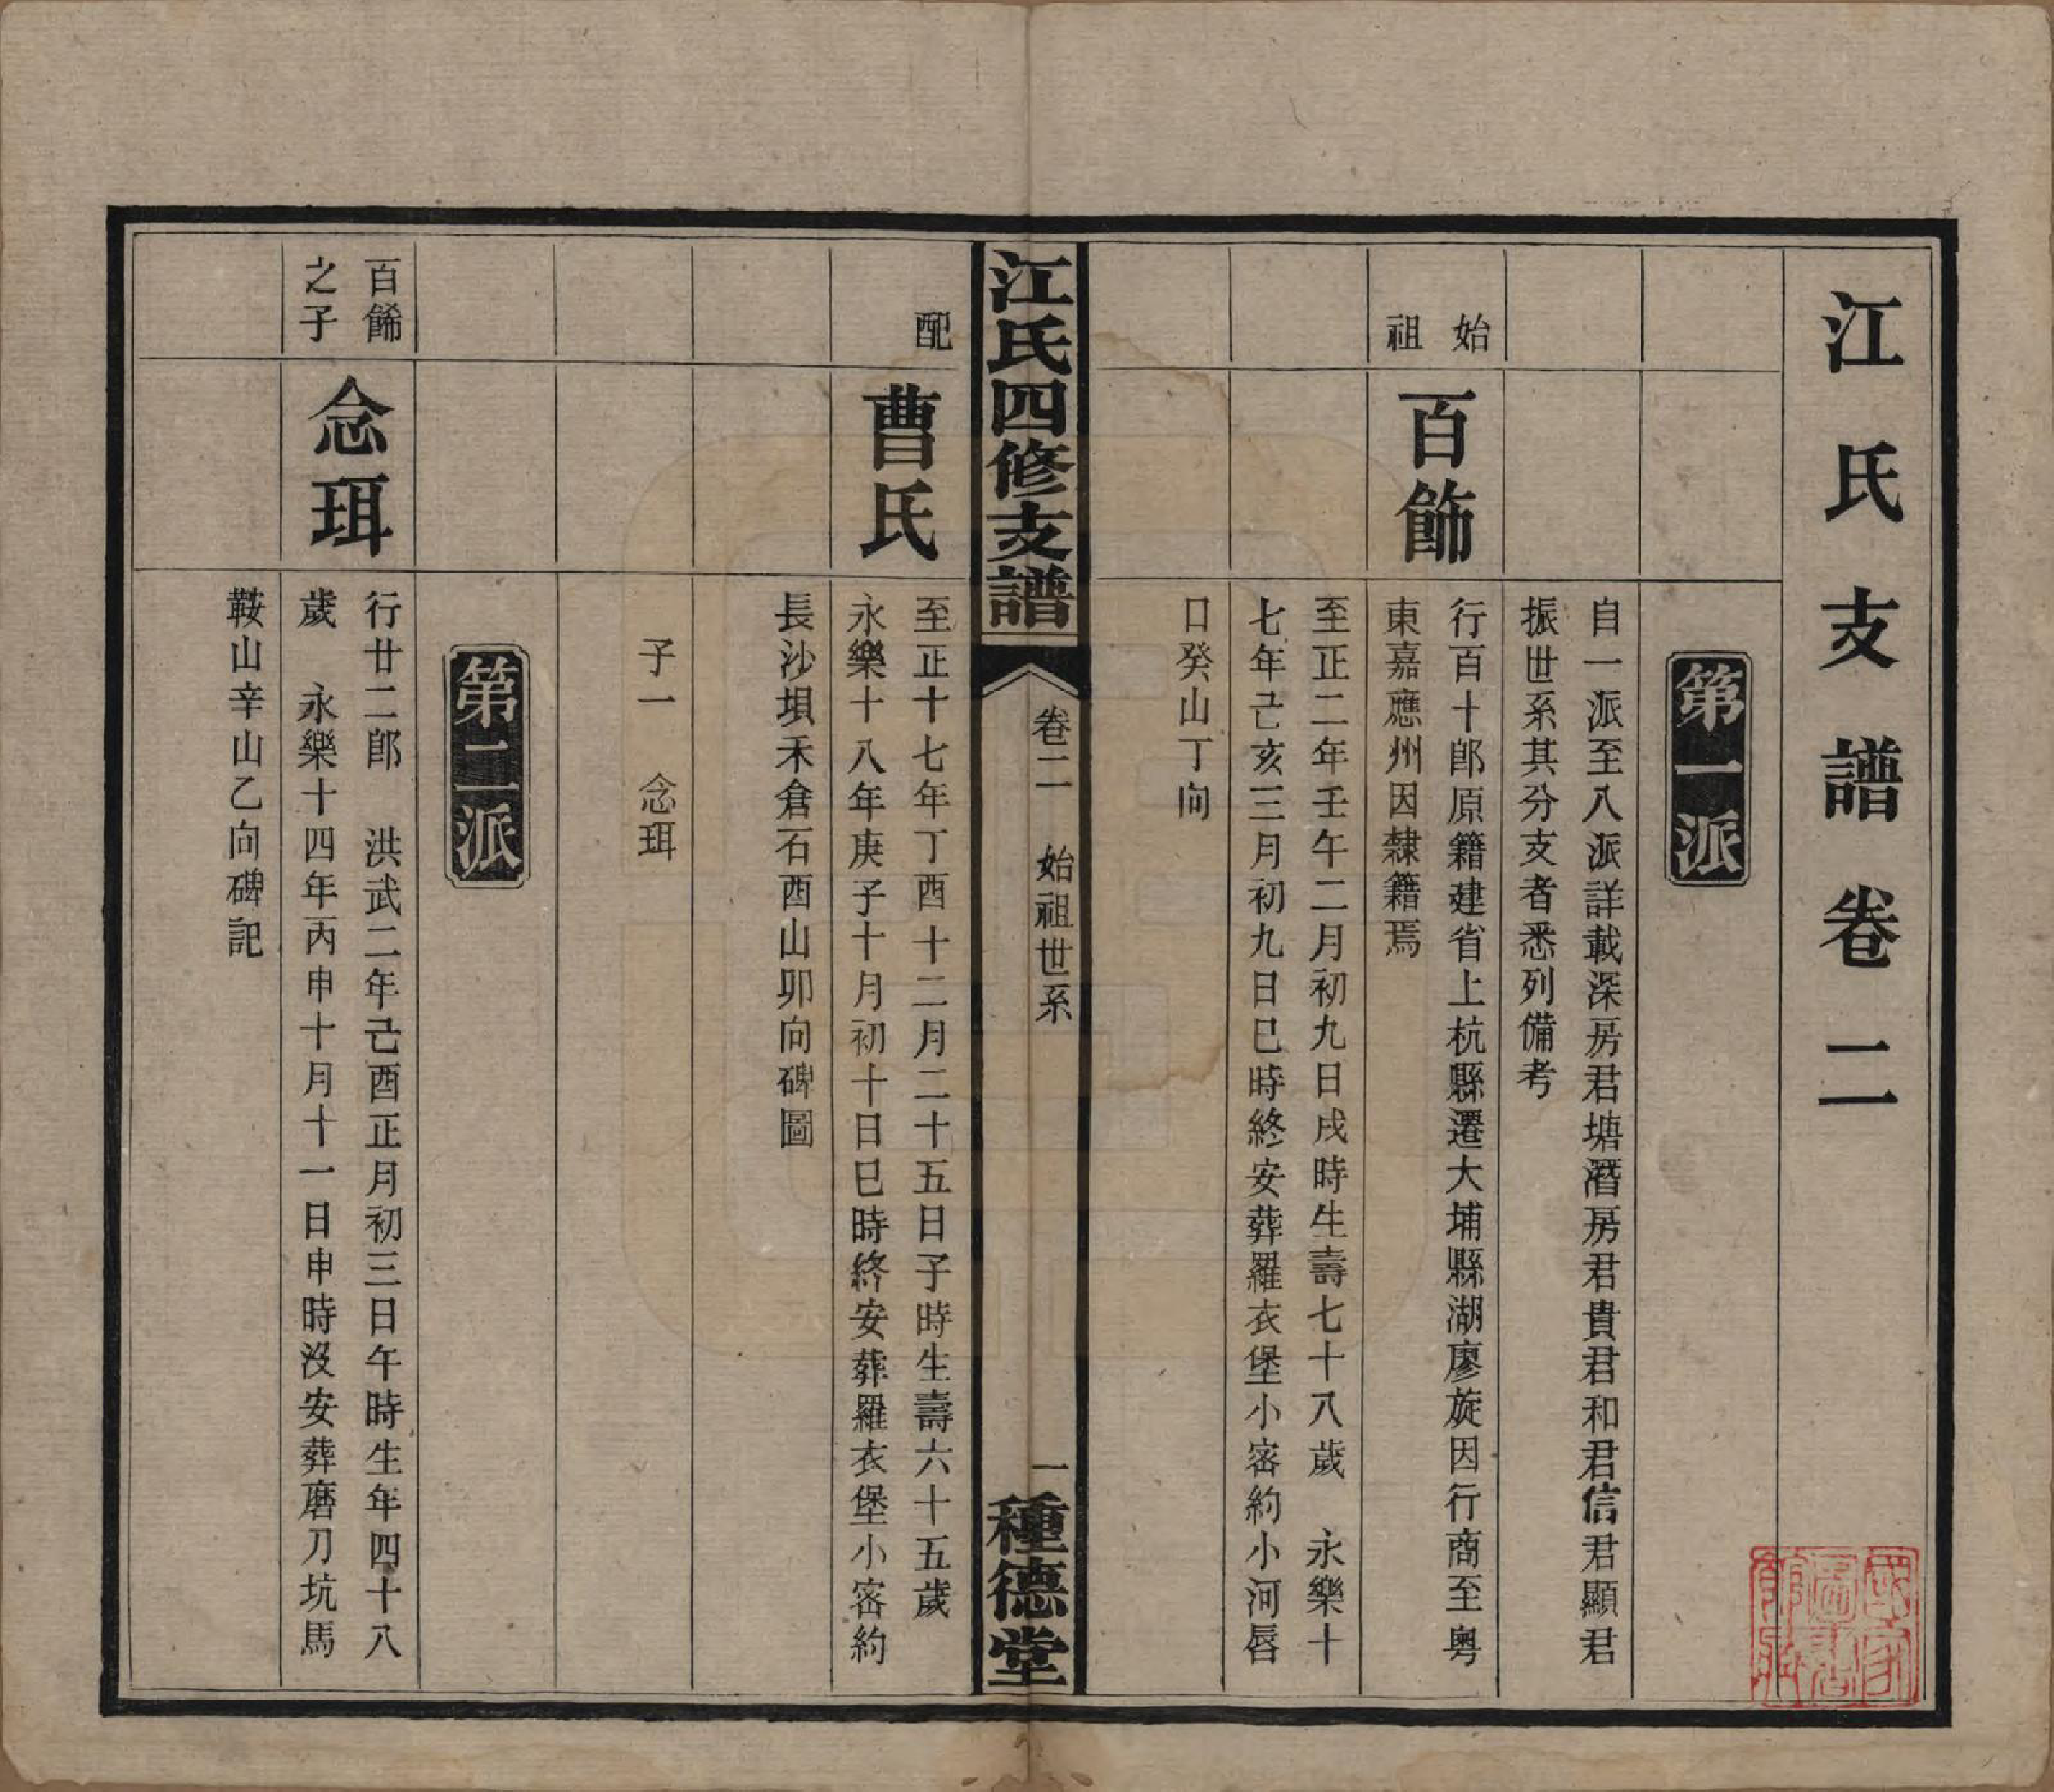 江氏支譜卷二
第一派
自一派至八派詳載深房君塘潛房君貴君和君信君顯君
振世系其分支者悉列備考
始祖
百飾
行百十郎原籍建省上杭縣遷大埔縣湖廖旋因行商至粵
東嘉應州因隸籍焉
至正二年壬午二月初九日戌時生壽七十八歲 永樂十
七年己亥三月初九日巳時終安葬羅衣堡小密約小河唇
口癸山丁向
江氏四修支譜
卷二 始祖世系
一
種德堂
配
曹氏
至正十七年丁酉十二月二十五日子時生壽六十五歲
永樂十八年庚子十月初十日巳時終安葬羅衣堡小密約
長沙垻禾倉石酉山卯向碑圖
子一 念珥
第二派
百飾之子
念珥
行廿二郎 洪武二年己酉正月初三日午時生年四十八
歲 永樂十四年丙申十月十一日申時沒安葬磨刀坑馬
鞍山辛山乙向碑記